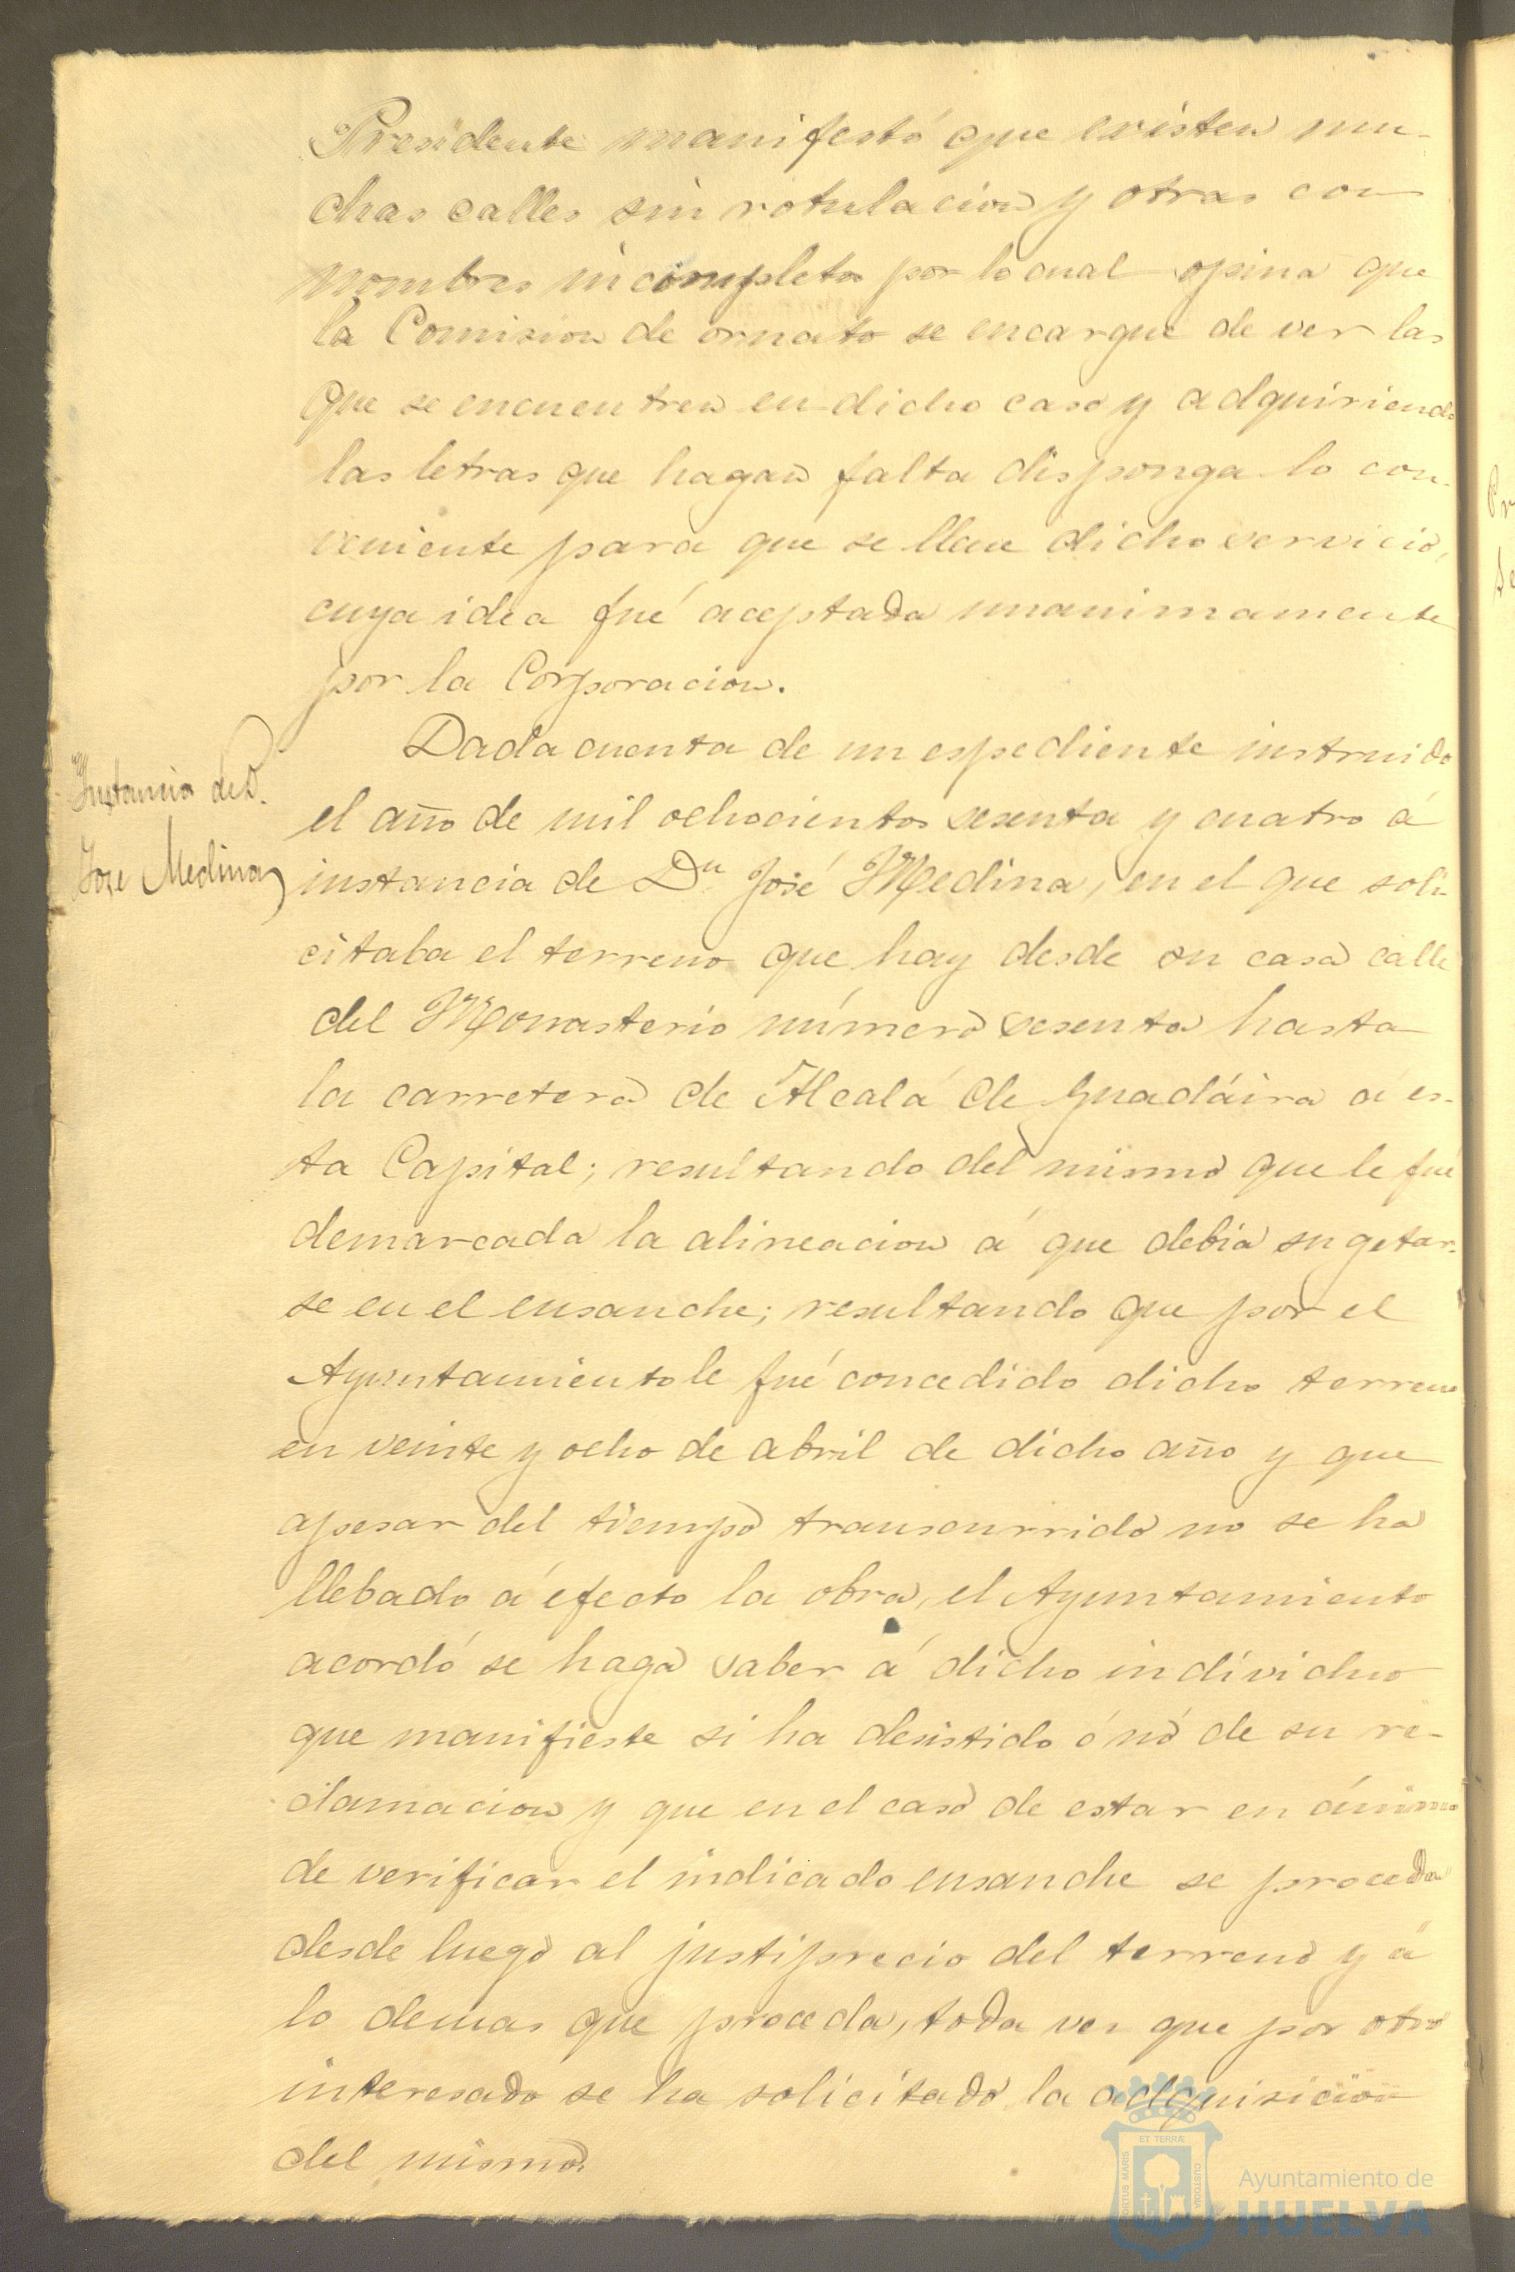 Presidente manifestó que existen mu-
chas calles sin rotulacion y otras con
nombres incompletos por lo cual opina que
la Comision de ornato se encargue de ver las
que se encuentren en dicho caso y adquiriendo
las letras que hagan falta disponga lo con-
veniente para que se llene dicho servicio,
cuya idea fué aceptada unanimamente
por la Corporacion.
Instancia de D.
Jose Medina
Dada cuenta de un espediente instruido
el año de mil ochocientos sesenta y cuatro á
instancia de Dn José Medina, en el que soli-
citaba el terreno que hay desde su casa calle
del Monasterio número sesenta hasta
la carretera de Alcalá de Guadáira á es-
ta Capital; resultando del mismo que le fué
demarcada la alineacion á que debia sugetar-
se en el ensanche; resultando que por el
Ayuntamiento le fué concedido dicho terreno
en veinte y ocho de abril de dicho año y que
apesar del tiempo transcurrido no se ha
llebado á efecto la obra, el Ayuntamiento
acordó se haga saber á dicho individuo
que manifieste si ha desistido ó nó de su re-
clamacion y que en el caso de estar en ánimo
de verificar el indicado ensanche se proceda
desde luego al justiprecio del terreno y á
lo demas que proceda, toda vez que por otro
interesado se ha solicitado la adquisicion
del mismo.
ET TERRÆ
PORTUS MARIS
CUSTODIA
Ayuntamiento de
HUELVA